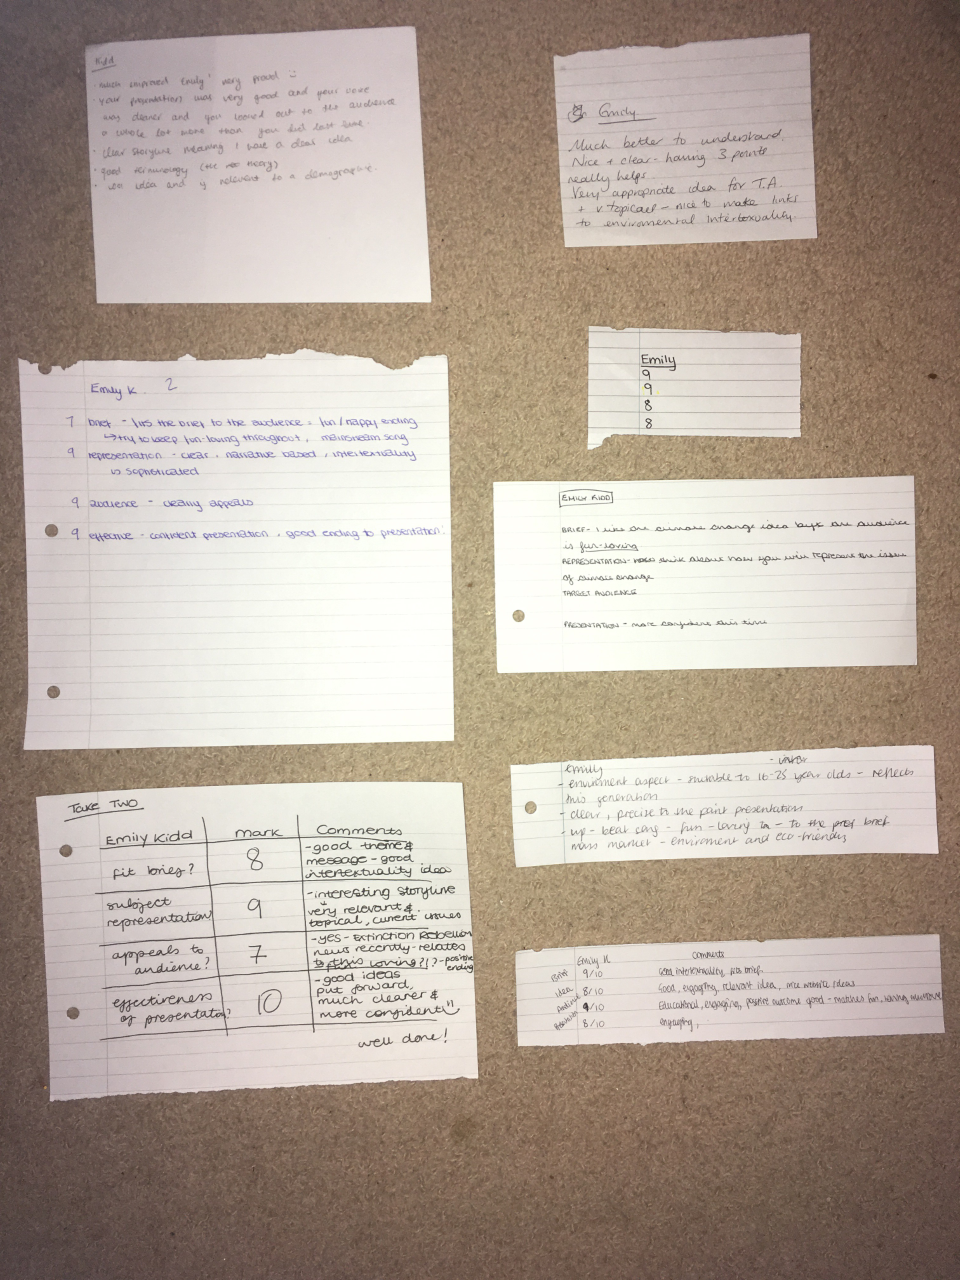 Kidd
• Much improved Emily! very proud :)
• your presentation was very good and your voice
was clearer and you looked out to the audience
a whole lot more than you did last time.
• clear storyline meaning I have a clear idea
• good terminology
• idea and is relevent to a demographic.
Emily
Much better to understand.
Nice + clear - having 3 points
really helps.
Very appropriate idea for T.A.
+ v topical - nice to make links
to enviromental intertextuality.
Emily
9
9
8
8
Emily K. 2
7 brief - fits the brief to the audience = fun/happy ending
↳ try to keep fun-loving throughout, mainstream song
9 representation - clear, narrative based, intertextuality
is sophisticated
9 audience - clearly appeals
9 effective - confident presentation, good ending to presentation.
EMILY KIDD
BRIEF - I like the climate change idea but the audience
is fun-loving
REPRESENTATION - think about how you will represent the issue
of climate change
TARGET AUDIENCE
PRESENTATION - more confident this time
Emily
- enviroment aspect - suitable to 16-25 year olds - reflects
this generation
- clear, precise to the point presentation
- up-beat song - fun-loving - to the brief
mass market - enviroment and eco-friendly
TAKE TWO
Emily Kidd mark Comments
fit brief? 8 -good theme &
message - good
intertextuality idea
subject
representation 9 -interesting storyline
very relevant &
topical, current issues
appeals to
audience? 7 -yes - Extinction Rebellion
news recently - relates
to this fun loving?!? - positive
ending
effectiveness
of presentation? 10 -good ideas
put forward,
much clearer &
more confident!
well done!
Emily K. Comments
Brief 9/10 Good intertextuality, fits brief.
Idea 8/10 Good, engaging, relevant idea, nice website ideas
Audience 9/10 Educational, engaging, positive outcome good - matches fun, loving, mainstream
8/10 engaging,